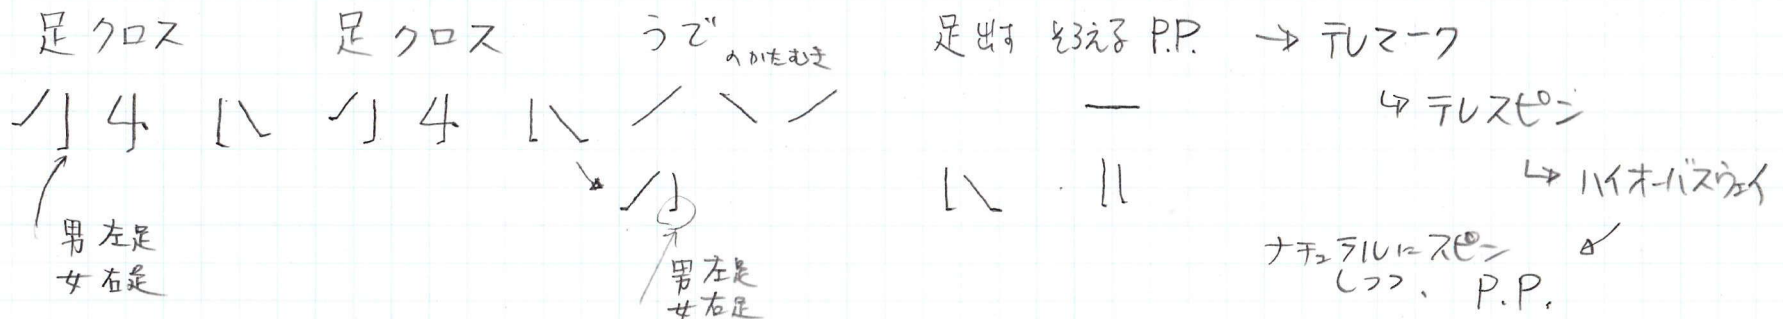 足クロス
足クロス
うで
のかたむき
足出す そろえる P.P. → テレマーク
↳ テレスピン
↳ ハイオーバースウェイ
男 左足
女 右足
男 左足
女 右足
ナチュラルにスピン
しつつ、 P.P.